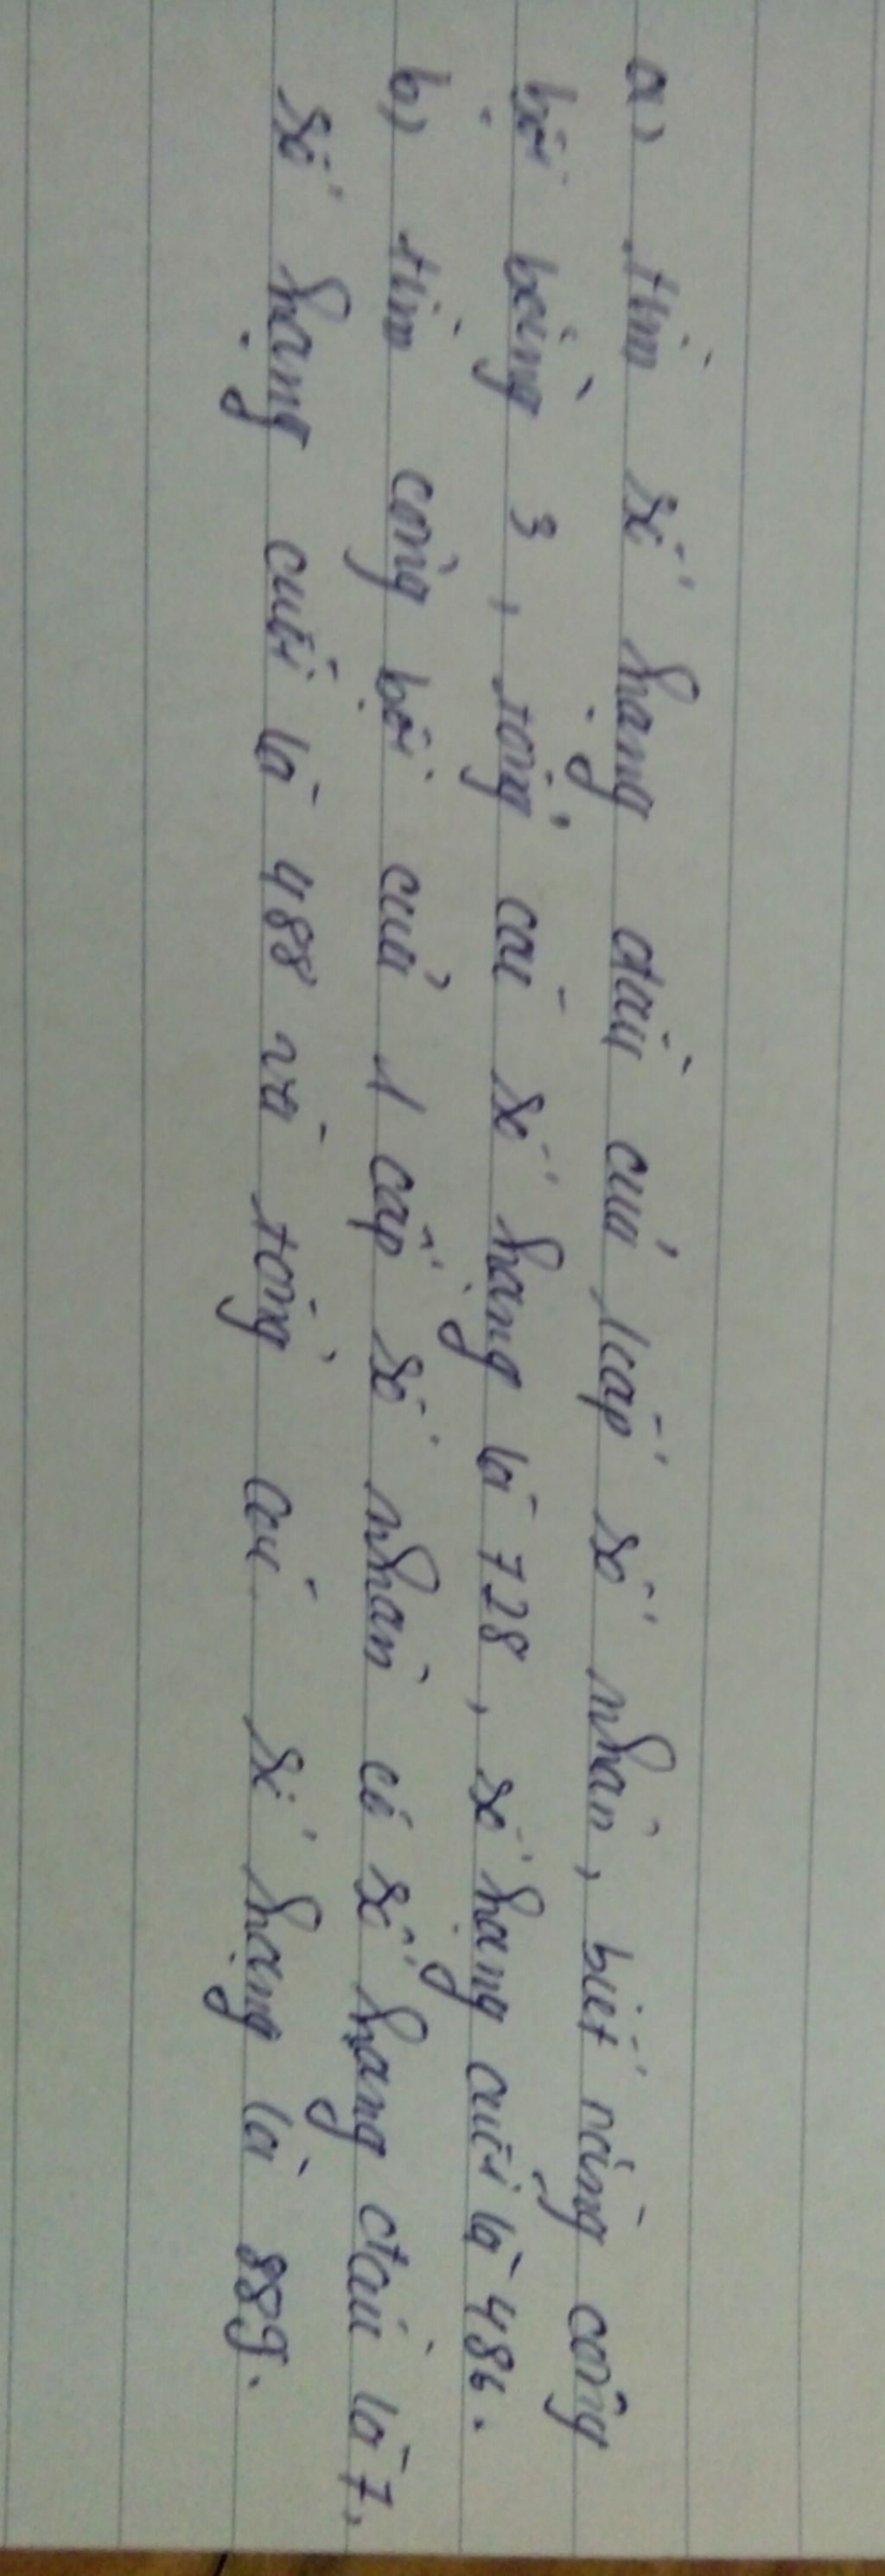 a) tìm số hạng đầu của 1 cấp số nhân, biết rằng công
bội bằng 3, tổng các số hạng là 728, số hạng cuối là 486.
b) tìm công bội của 1 cấp số nhân có số hạng đầu là 7,
số hạng cuối là 488 và tổng các số hạng là 889.